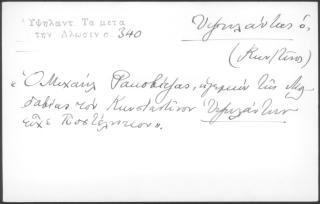 Ὑψηλαντ. Τα μετα
την Άλωσιν σ. 340
Ὑψηλάντης ὁ,
(Κων/τῖνος)
«Ὁ Μιχαὴλ Ρακοβίτζας, ἡγεμὼν τῆς Μολ
δαβίας τὸν Κωνσταντῖνον Ὑψηλάντην
εἶχε Ποστέλνικον».